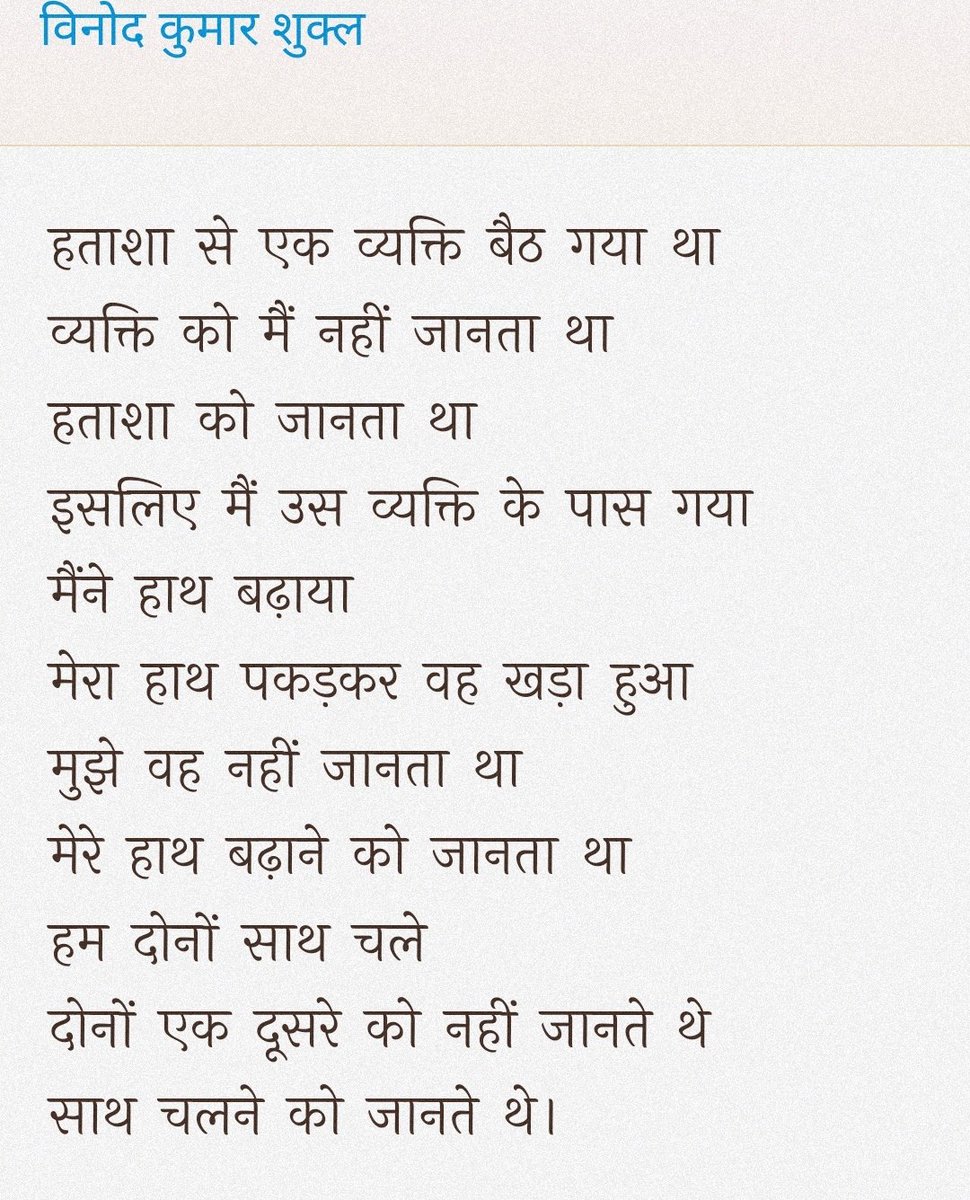 विनोद कुमार शुक्ल
हताशा से एक व्यक्ति बैठ गया था
व्यक्ति को मैं नहीं जानता था
हताशा को जानता था
इसलिए मैं उस व्यक्ति के पास गया
मैंने हाथ बढ़ाया
मेरा हाथ पकड़कर वह खड़ा हुआ
मुझे वह नहीं जानता था
मेरे हाथ बढ़ाने को जानता था
हम दोनों साथ चले
दोनों एक दूसरे को नहीं जानते थे
साथ चलने को जानते थे।